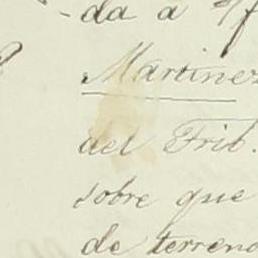 -da a
Martinez
del Trib.
sobre que
de terreno